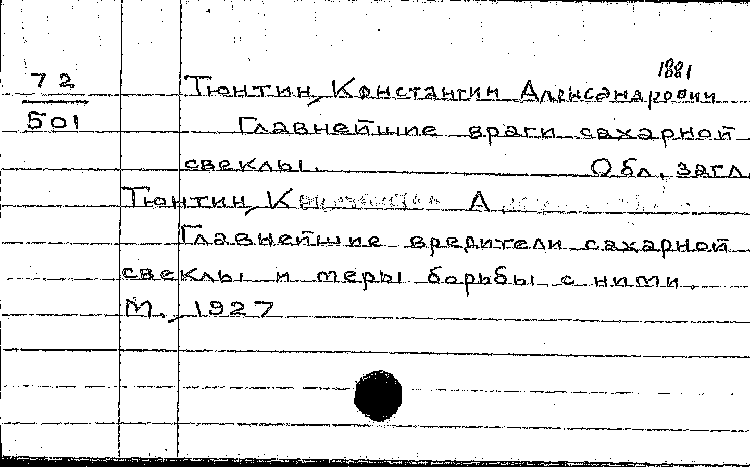 1881
72 Тюнтин, Константин Александрович
501 Главнейшие враги сахарной
свеклы. Обл. загл.
Тюнтин, К А
Главнейшие вредители сахарной
свеклы и меры борьбы с ними.
М., 1927